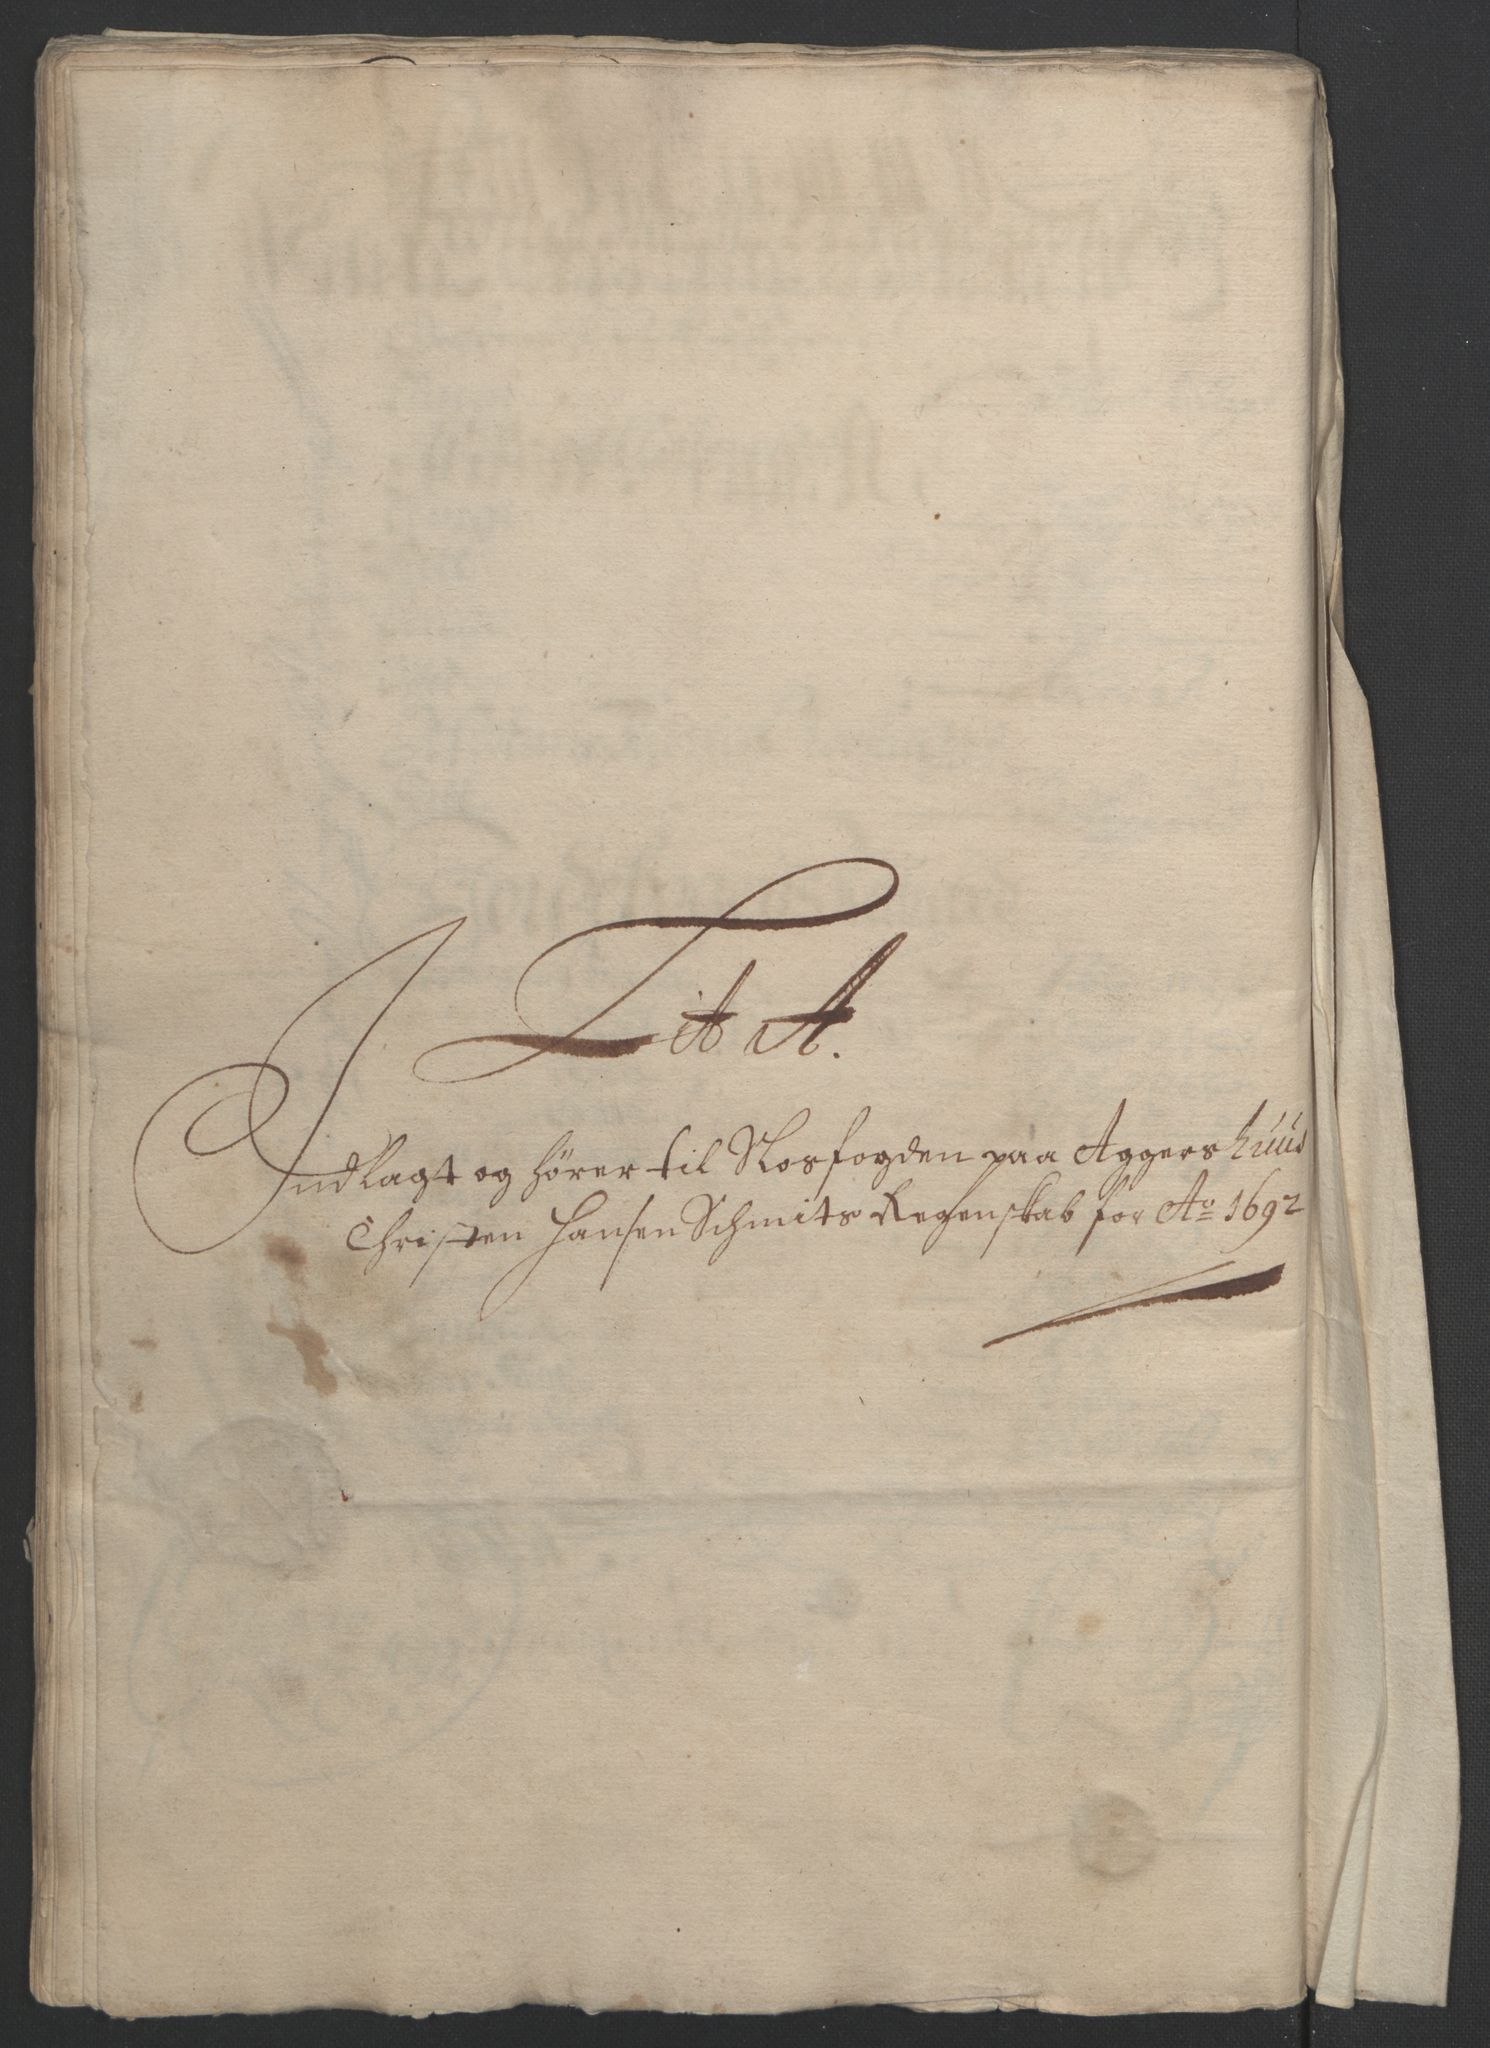 Lit A.
Indlagt og hører til Slosfogden paa Aggershuus
Christen Hansen Schmits Regenskab for Ao 1692